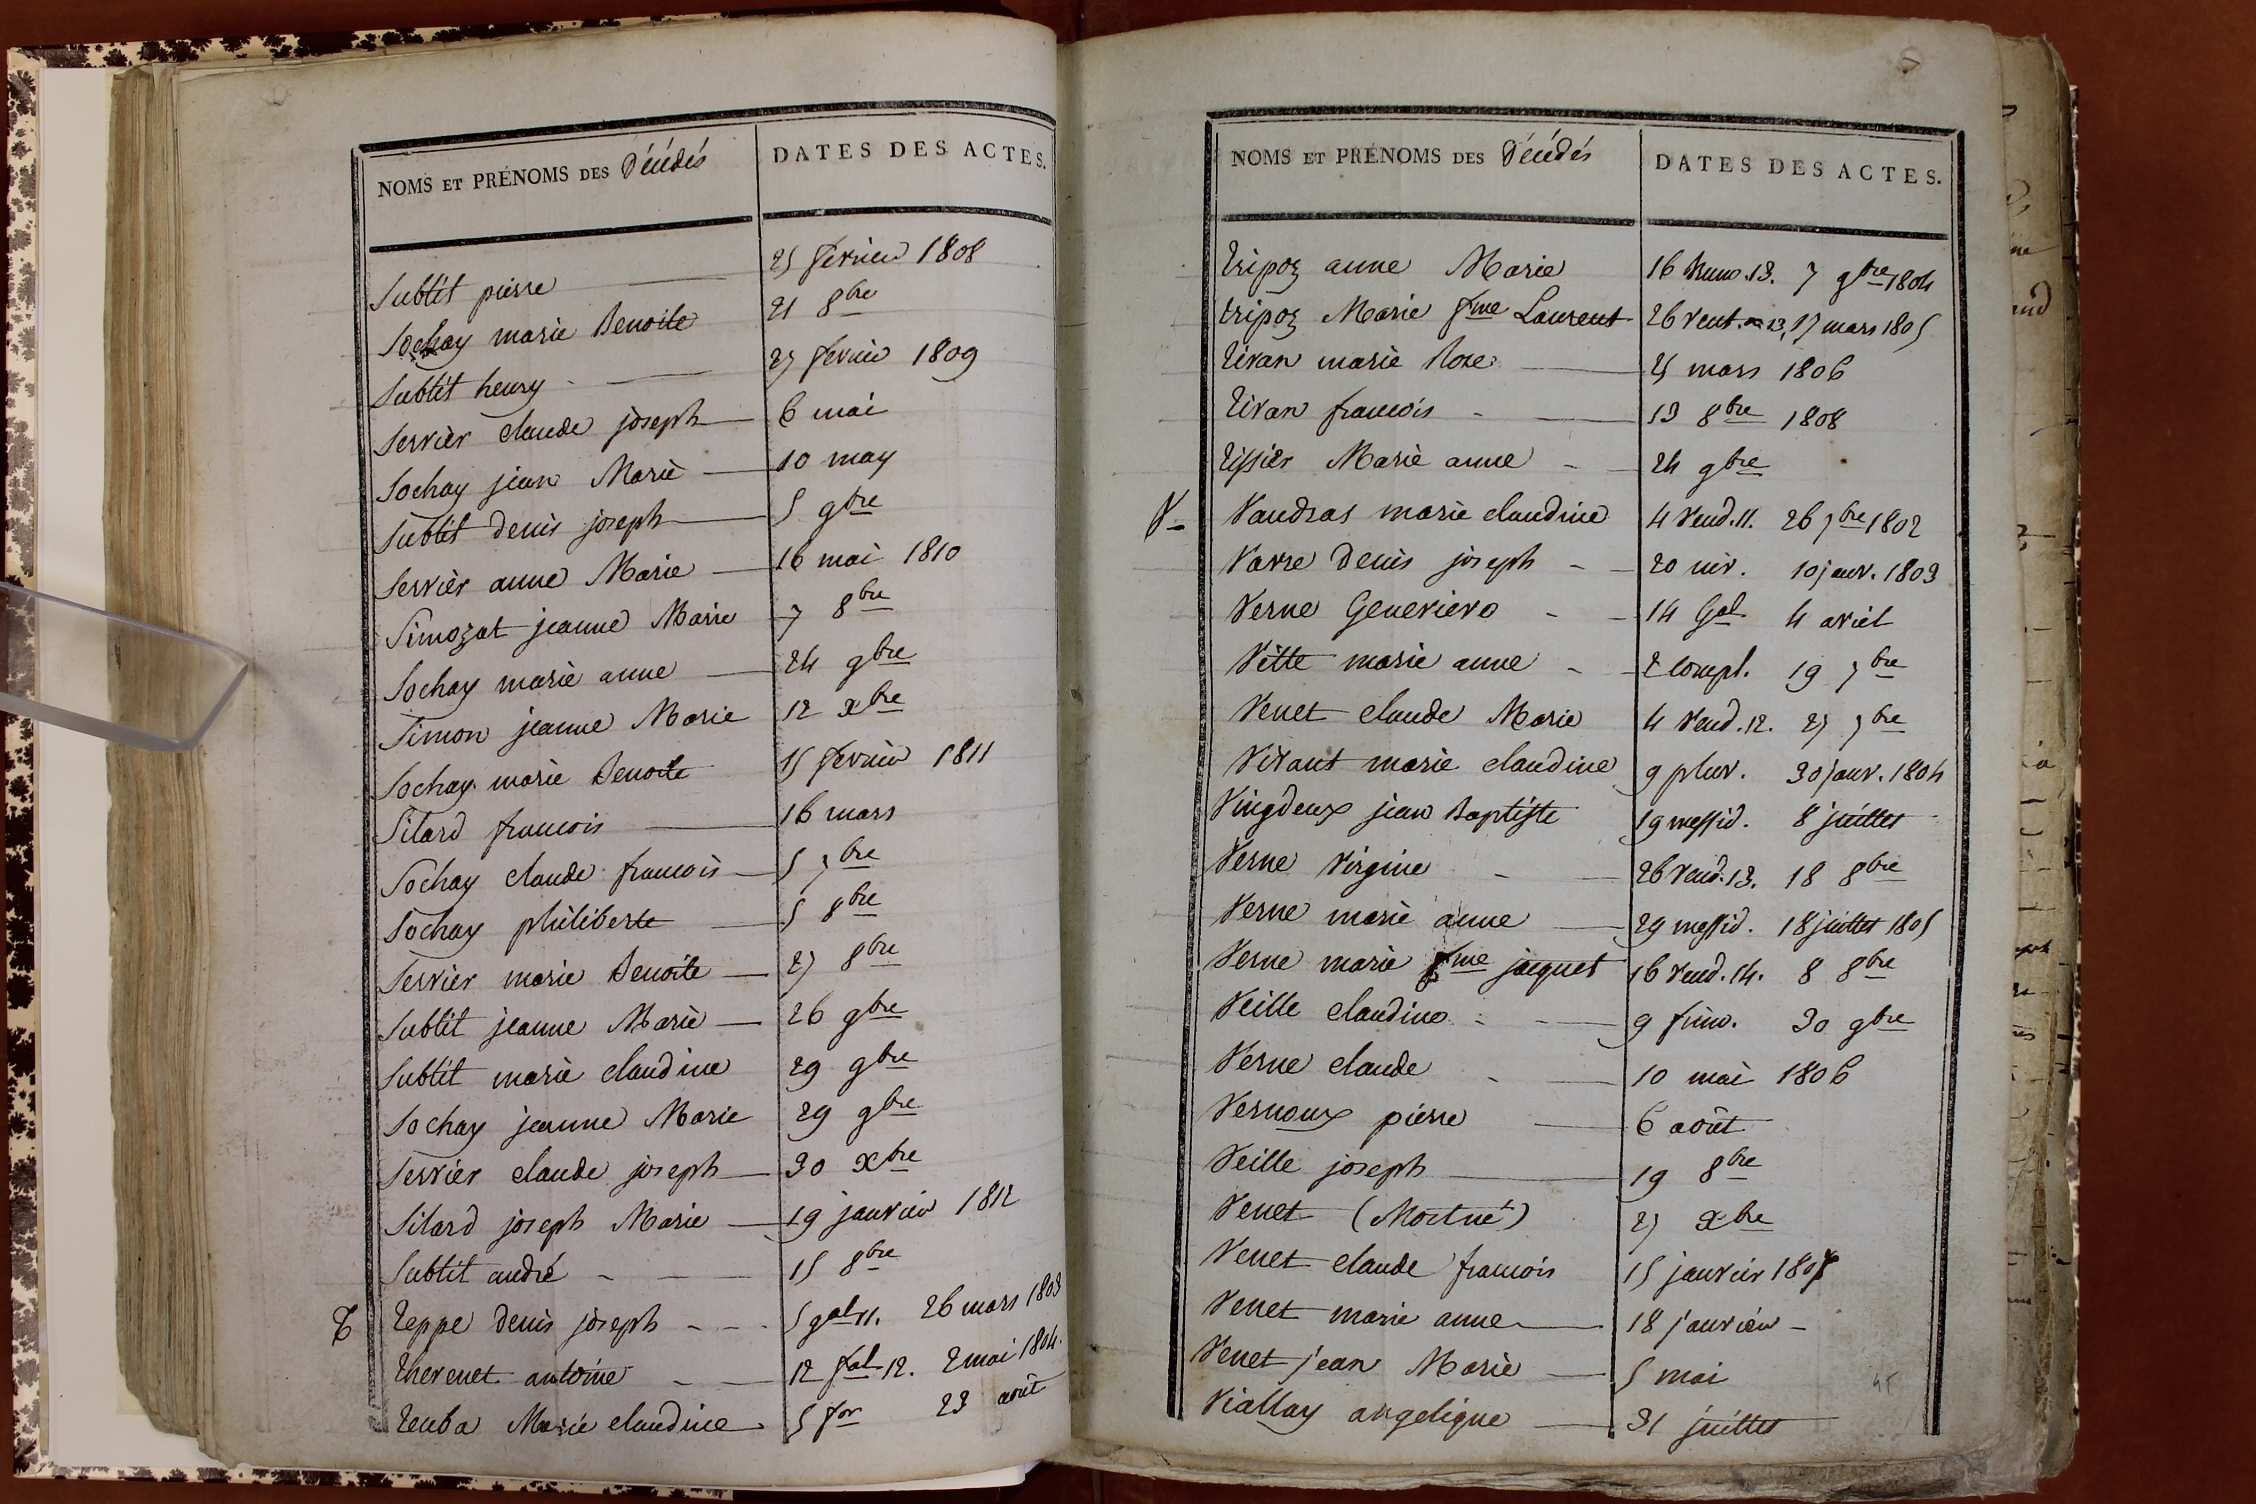 NOMS ET PRÉNOMS DES Décédés DATES DES ACTES.
Subtit pierre 25 fevrier 1808
Sochay marie Benoite 21 8bre
Subtit henry 27 fevrier 1809
Servier claude joseph 6 mai
Sochay jean Marie 10 may
Subtit denis joseph 5 9bre
Servier anne Marie 16 mai 1810
Simozat jeanne Marie 7 8bre
Sochay marie anne 24 9bre
Simon jeanne Marie 12 xbre
Sochay marie Benoite 15 fevrier 1811
Silard francois 16 mars
Sochay claude francois 5 7bre
Sochay philiberte 5 8bre
Servier marie Benoite 27 8bre
Subtit jeanne Marie 26 9bre
Subtit marie claudine 29 9bre
Sochay jeanne Marie 29 9bre
Servier claude joseph 30 xbre
Silard joseph Marie 19 janvier 1812
Subtit andré 15 8bre
T Teppe denis joseph 5 gal 11. 26 mars 1803
Thevenet antoine 12 fal 12. 2 mai 1804.
Tenba Marie claudine 5 for 23 août
NOMS ET PRÉNOMS DES Décédés DATES DES ACTES.
Tripoz anne Marie 16 brum. 13. 7 9bre 1804
tripoz Marie fme Laurent 26 vent. an 13, 17 mars 1805
Tivan marie Rose 25 mars 1806
Tivan francois 13 8bre 1808
Tissier Marie anne 24 9bre
V Vaudras marie claudine 4 Vend. 11. 26 7bre 1802
Varre denis joseph 20 niv. 10 janv. 1803
Verne Genevieve 14 Gal 4 avril
Vitte marie anne 2 compl. 19 7bre
Venet claude Marie 4 Vend. 12. 27 7bre
Vivant marie claudine 9 pluv. 30 janv. 1804
Vingdeux jean Baptiste 19 messid. 8 juillet
Verne Virgine 26 Vend. 13. 18 8bre
Verne marie anne 29 messid. 18 juillet 1805
Verne marie fme jacquet 16 Vend. 14. 8 8bre
Veille claudine 9 frim. 30 9bre
Verne claude 10 mai 1806
Vernoux pierre 6 août
Veille joseph 19 8bre
Venet (Mortné) 27 xbre
Venet claude francois 15 janvier 1807
Venet marie anne 18 janvier
Venet jean Marie 5 mai
Viallay angelique 31 juillet